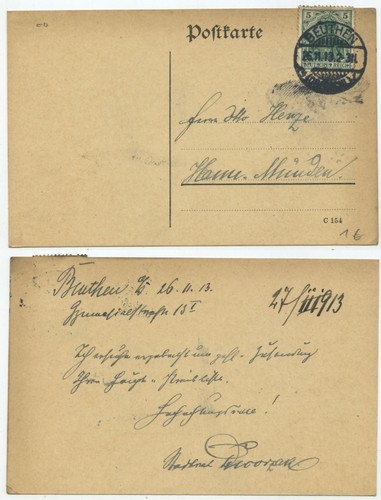 Postkarte
5 5
BEUTHEN
26.11.13. 2-3N.
Herrn Otto Henze
Hann.-Münden.
C 154
16
Beuthen O/S 26.11.13.
Gymnasialstraße 15 I
27/ 1913
Ich ersuche ergebenst um gefl. Zusendung
Ihrer Haupt-Preisliste.
Hochachtungsvoll!